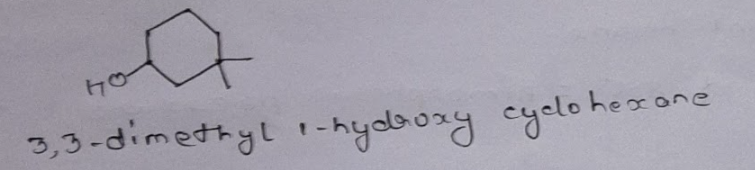 HO
3,3-dimethyl 1-hydroxy cyclohexane